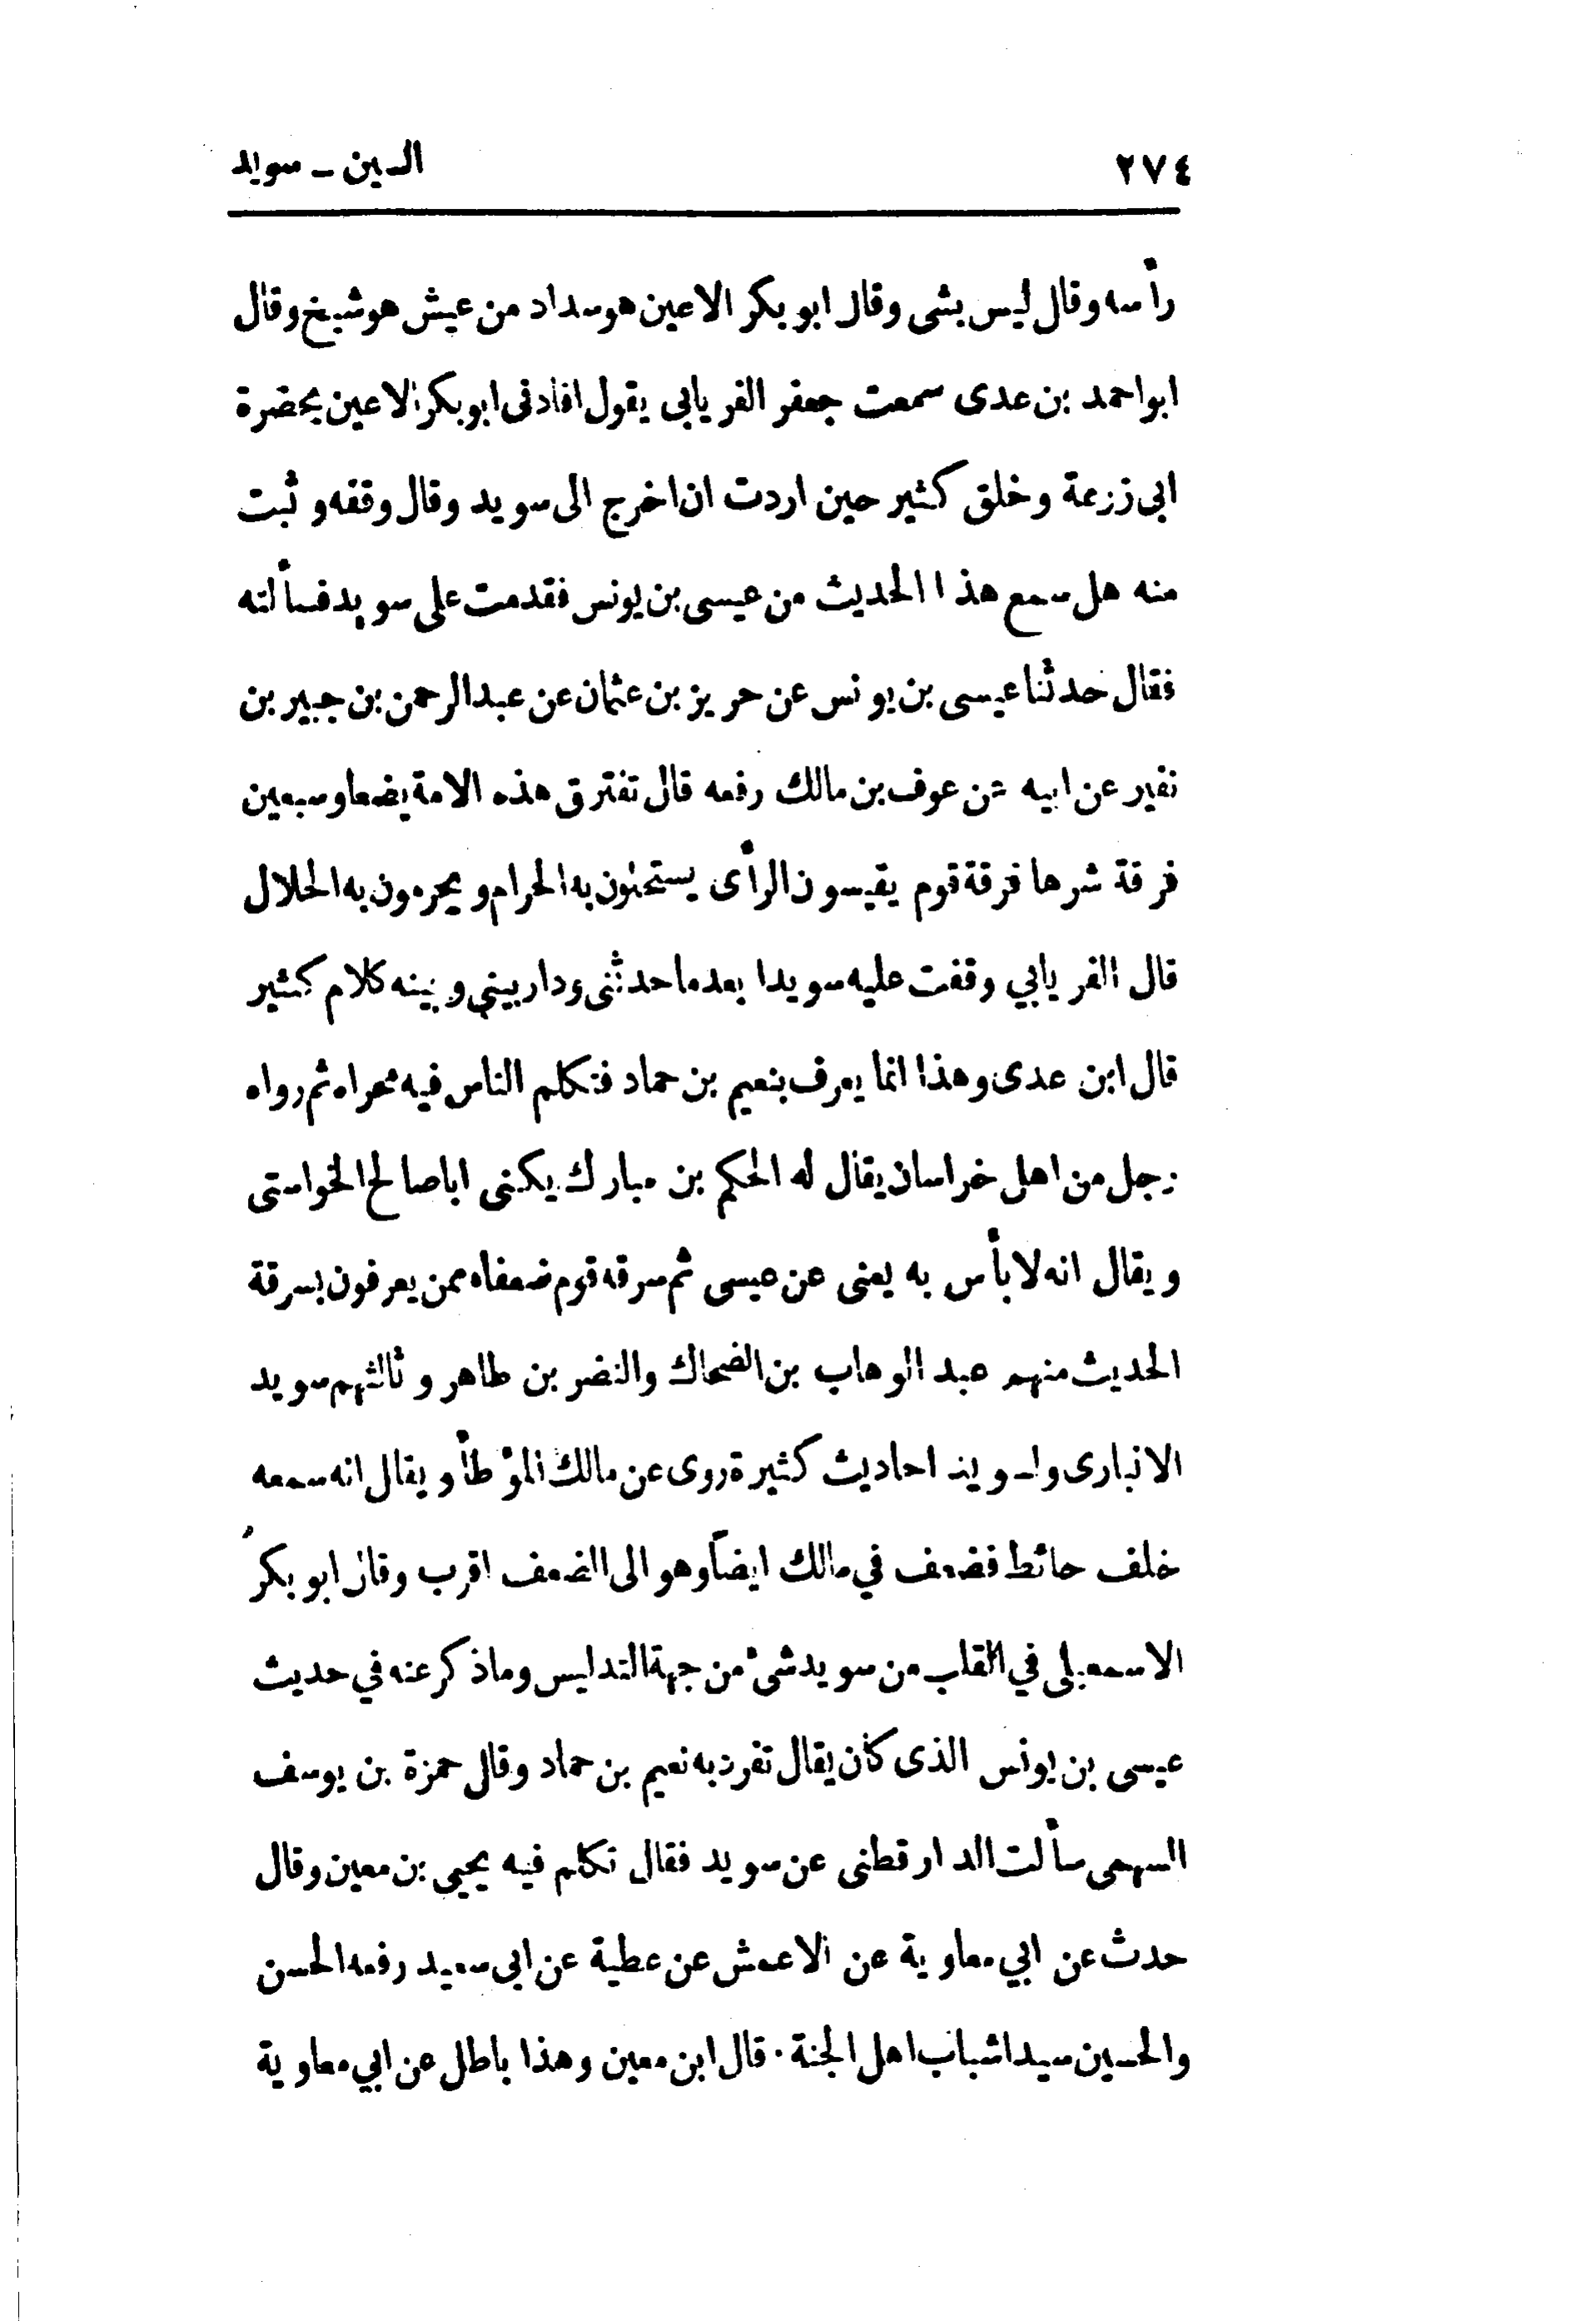 ٢٧٤ السين ـ سويد
رأسه وقال ليس بشى وقال ابو بكر الاعين هو سداد من عيش هو شيخ وقال
ابو احمد بن عدى سمعت جعفر الفريابى يقول افادنى ابو بكر الاعين بحضرة
ابى زرعة وخلق كثير حين اردت ان اخرج الى سويد وقال وقفه و ثبت
منه هل سمع هذا الحديث من عيسى بن يونس فقدمت على سويد فسألته
فقال حدثنا عيسى بن يونس عن حريز بن عثمان عن عبد الرحمن بن جبير بن
نفير عن ابيه عن عوف بن مالك رفعه قال تفترق هذه الامة بضعا وسبعين
فرقة شرها فرقة قوم يقيسون الرأى يستحلون به الحرام و يحرمون به الحلال
قال الفريابي وقفت عليه سويدا بعد ما حدثنى ودار بيني وبينه كلام كثير
قال ابن عدى وهذا انما يعرف بنعيم بن حماد فتكلم الناس فيه مجراه ثم رواه
رجل من اهل خراسان يقال له الحكم بن مبارك يكنى ابا صالح الخواستى
ويقال انه لا بأس به يعنى عن عيسى ثم سرقه قوم ضعفاء ممن يعرفون بسرقة
الحديث منهم عبد الوهاب بن الضحاك والنضر بن طاهر وثالثهم سويد
الانبارى ولسويد احاديث كثيرة روى عن مالك الموْطأ ويقال انه سمعه
خلف حائط فضعف في مالك ايضاً وهو الى الضعف اقرب وقال ابو بكر
الاسمعيلى في القلب من سويد شىْ من جهة التدليس وما ذكر عنه في حديث
عيسى بن يونس الذى كان يقال تفرد به نعيم بن حماد وقال حمزة بن يوسف
السهمى سألت الدارقطنى عن سويد فقال تكلم فيه يحيى بن معين وقال
حدث عن ابي معاوية عن الاعمش عن عطية عن ابى سعيد رفعه الحسن
والحسين سيدا شباب اهل الجنة . قال ابن معين وهذا باطل عن ابي معاوية